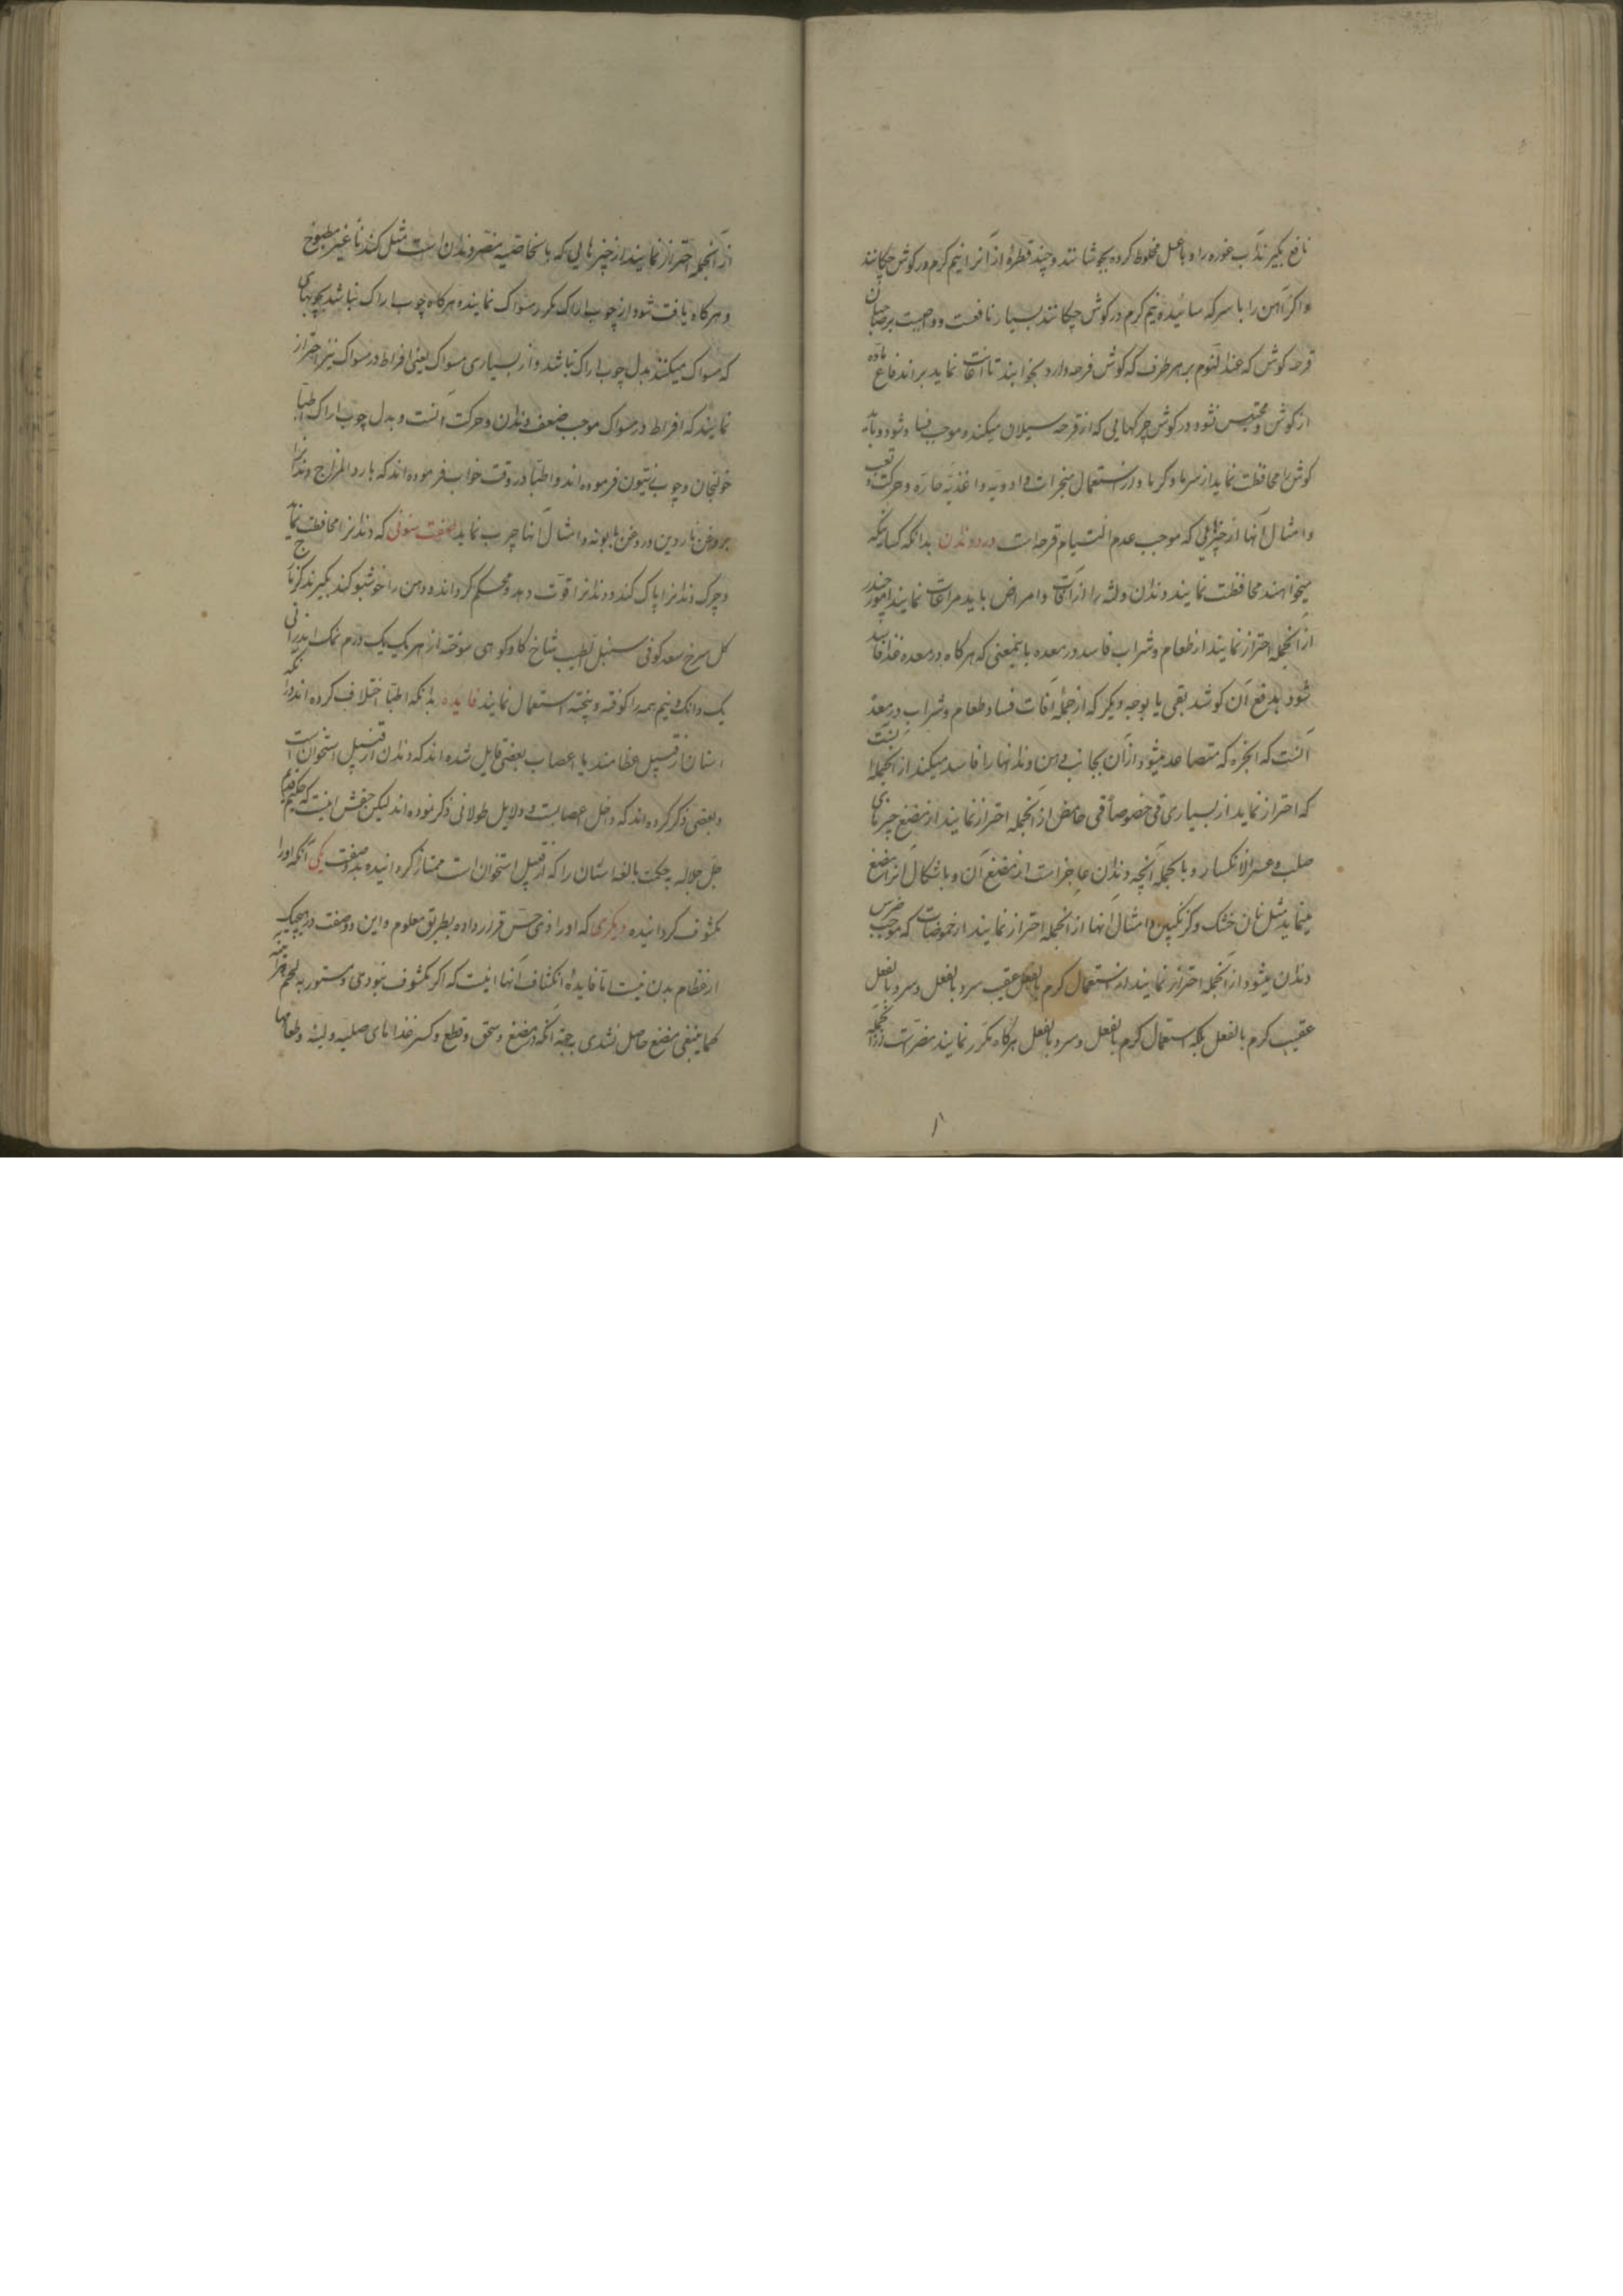 نافع بگیرند آب غوره را و با عسل مخلوط کرده بجوشانند و چند قطرهٔ از آنرا نیم گرم در گوش چکانند
و اگر آهن را با سرکه سائیده و نیم گرم در گوش چکانند بسیار نافعست و واجبست بر صاحبان
قرحه گوش که عند النوم بر هر طرف که گوش قرحه دارد بخوابند تا اعانت نماید بر اندفاع ماده
از گوش و محتبس نشود در گوش چرکهایی که از قرحه سیلان میکند و موجب فساد شود و باید
گوش را محافظت نماید از سرما و گرما و از استعمال مبخرات و ادویه و اغذیه حاره و حرکت تعب
و امثال آنها از چیزهایی که موجب عدم التیام قرحه است درد دندان بدانکه کسانیکه
میخواهند محافظت نمایند دندان و لثه را از آفات و امراض باید مراعات نمایند امور چند را
از آنجمله احتراز نمایند از طعام و شراب فاسد در معده باینمعنی که هرگاه در معده غذا فاسد
شود بدفع آن کوشد بقی یا بوجه دیگر که از جمله آفات فساد طعام و شراب در معده
آنست که ابخره که متصاعد میشود از آن بجانب دهن و دندانها را فاسد میکند از آنجمله آنست
که احتراز نماید از بسیاری قی خصوصاً قی حامض از آنجمله احتراز نمایند از مضغ چیزهای
صلب و عسر الانکسار و بالجمله آنچه دندان عاجز است از مضغ آن و باشکال آنرا مضغ
مینماید مثل نان خشک و گزنگبین و امثال آنها از آنجمله احتراز نمایند از حموضات که موجب ضرس
دندان میشود از آنجمله احتراز نمایند از استعمال گرم بالفعل عقیب سرد بالفعل و سرد بالفعل
عقیب گرم بالفعل بلکه استعمال گرم بالفعل و سرد بالفعل هرگاه مکرر نمایند مضرتست از آنجمله
از آنجمله احتراز نمایند از چیزهایی که بالخاصیه مضر دندان است مثل کندنا غیر مطبوخ
و هرگاه یافت شود از چوب اراک مکرر مسواک نمایند و هرگاه چوب اراک نباشد بچوبهای
که مسواک میکنند بدل چوب اراک نباشد و از بسیاری مسواک یعنی افراط در مسواک نیز احتراز
نمایند که افراط در مسواک موجب ضعف دندان و حرکت آنست و بدل چوب اراک اطبا
خولنجان و چوب زیتون فرموده‌اند و اطبا در وقت خواب فرموده‌اند که بارد المزاج دندانرا
بروغن ناردین و روغن بابونه و امثال آنها چرب نماید صفت سنونی که دندانرا محافظت نماید
و چرک دندانرا پاک کند و دندانرا قوت دهد و محکم گرداند و دهن را خوشبو کند بگیرند کزمازج
گل سرخ سعد کوفی سنبل الطیب شاخ گاو کوهی سوخته از هر یک یک درم نمک اندرانی
یک دانک و نیم همه را کوفته و بیخته استعمال نمایند فایده بدانکه اطبا اختلاف کرده‌اند در آنکه
اسنان از قبیل عظامند یا اعصاب بعضی قایل شده‌اند که دندان از قبیل استخوان است
و بعضی ذکر کرده‌اند که داخل اعصابست و دلایل طولانی ذکر نموده‌اند لیکن حقش اینست که حکیم قدیم
جل جلاله بحکمت بالغه اسنان را که از قبیل استخوان است ممتاز گردانیده بدو صفت یکی آنکه او را
مکشوف گردانیده دیگری که او را ذی حس قرار داده بطریق معلوم و این دو صفت در هیچیک
از عظام بدن نیست اما فایدهٔ انکشاف آنها اینست که اگر مکشوف نبودی و مستور به لحم
کما ینبغی مضغ حاصل نشدی به جهة آنکه در مضغ و سحق و قطع و کسر غذاهای صلبه و لینه و طعامها